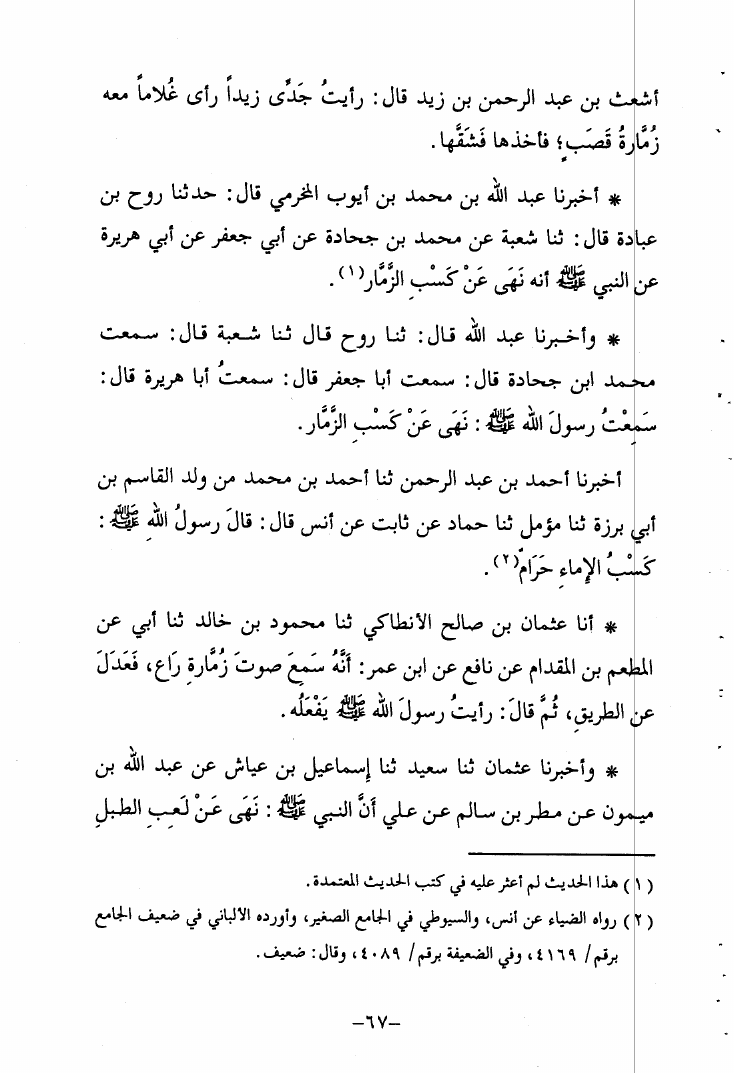 أشعث بن عبد الرحمن بن زيد قال: رأيتُ جَدِّى زيداً رأى غُلاماً معه
زُمَّارةُ قَصَبٍ؛ فأخذها فَشَقَّها.
* أخبرنا عبد الله بن محمد بن أيوب المخرمي قال: حدثنا روح بن
عبادة قال: ثنا شعبة عن محمد بن جحادة عن أبي جعفر عن أبي هريرة
عن النبي ﷺ أنه نَهَى عَنْ كَسْبِ الزَّمَّار(١).
* وأخبرنا عبد الله قال: ثنا روح قال ثنا شعبة قال: سمعت
محمد ابن جحادة قال: سمعت أبا جعفر قال: سمعتُ أبا هريرة قال:
سَمِعْتُ رسولَ الله ﷺ: نَهَى عَنْ كَسْبِ الزَّمَّار.
أخبرنا أحمد بن عبد الرحمن ثنا أحمد بن محمد من ولد القاسم بن
أبي برزة ثنا مؤمل ثنا حماد عن ثابت عن أنس قال: قالَ رسولُ اللهِ ﷺ:
كَسْبُ الإماءِ حَرَامٌ(٢).
* أنا عثمان بن صالح الأنطاكي ثنا محمود بن خالد ثنا أبي عن
المطعم بن المقدام عن نافع عن ابن عمر: أَنَّهُ سَمِعَ صوتَ زُمَّارةِ رَاع، فَعَدَلَ
عن الطريقِ، ثُمَّ قالَ: رأيتُ رسولَ الله ﷺ يَفْعَلُه.
* وأخبرنا عثمان ثنا سعيد ثنا إسماعيل بن عياش عن عبد الله بن
ميمون عن مطر بن سالم عن علي أَنَّ النبي ﷺ: نَهَى عَنْ لَعِبِ الطبلِ
(١) هذا الحديث لم أعثر عليه في كتب الحديث المعتمدة.
(٢) رواه الضياء عن أنس، والسيوطي في الجامع الصغير، وأورده الألباني في ضعيف الجامع
برقم/ ٤١٦٩، وفي الضعيفة برقم/ ٤٠٨٩، وقال: ضعيف.
–٦٧–